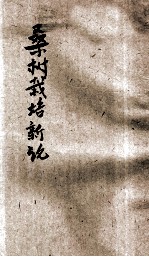 桑树栽培新说